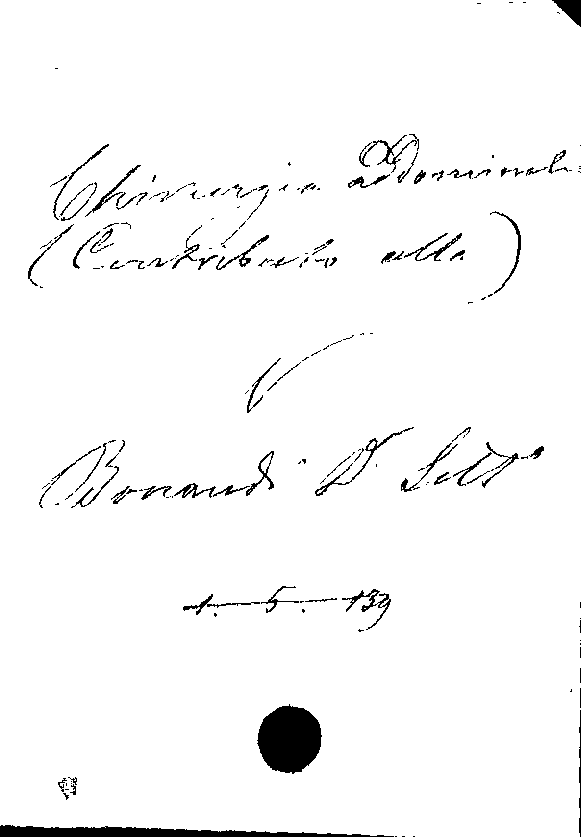 Chirurgia addominale
(Contributo alla)
V
Bonandi Dr Silv.
1. 5. 139